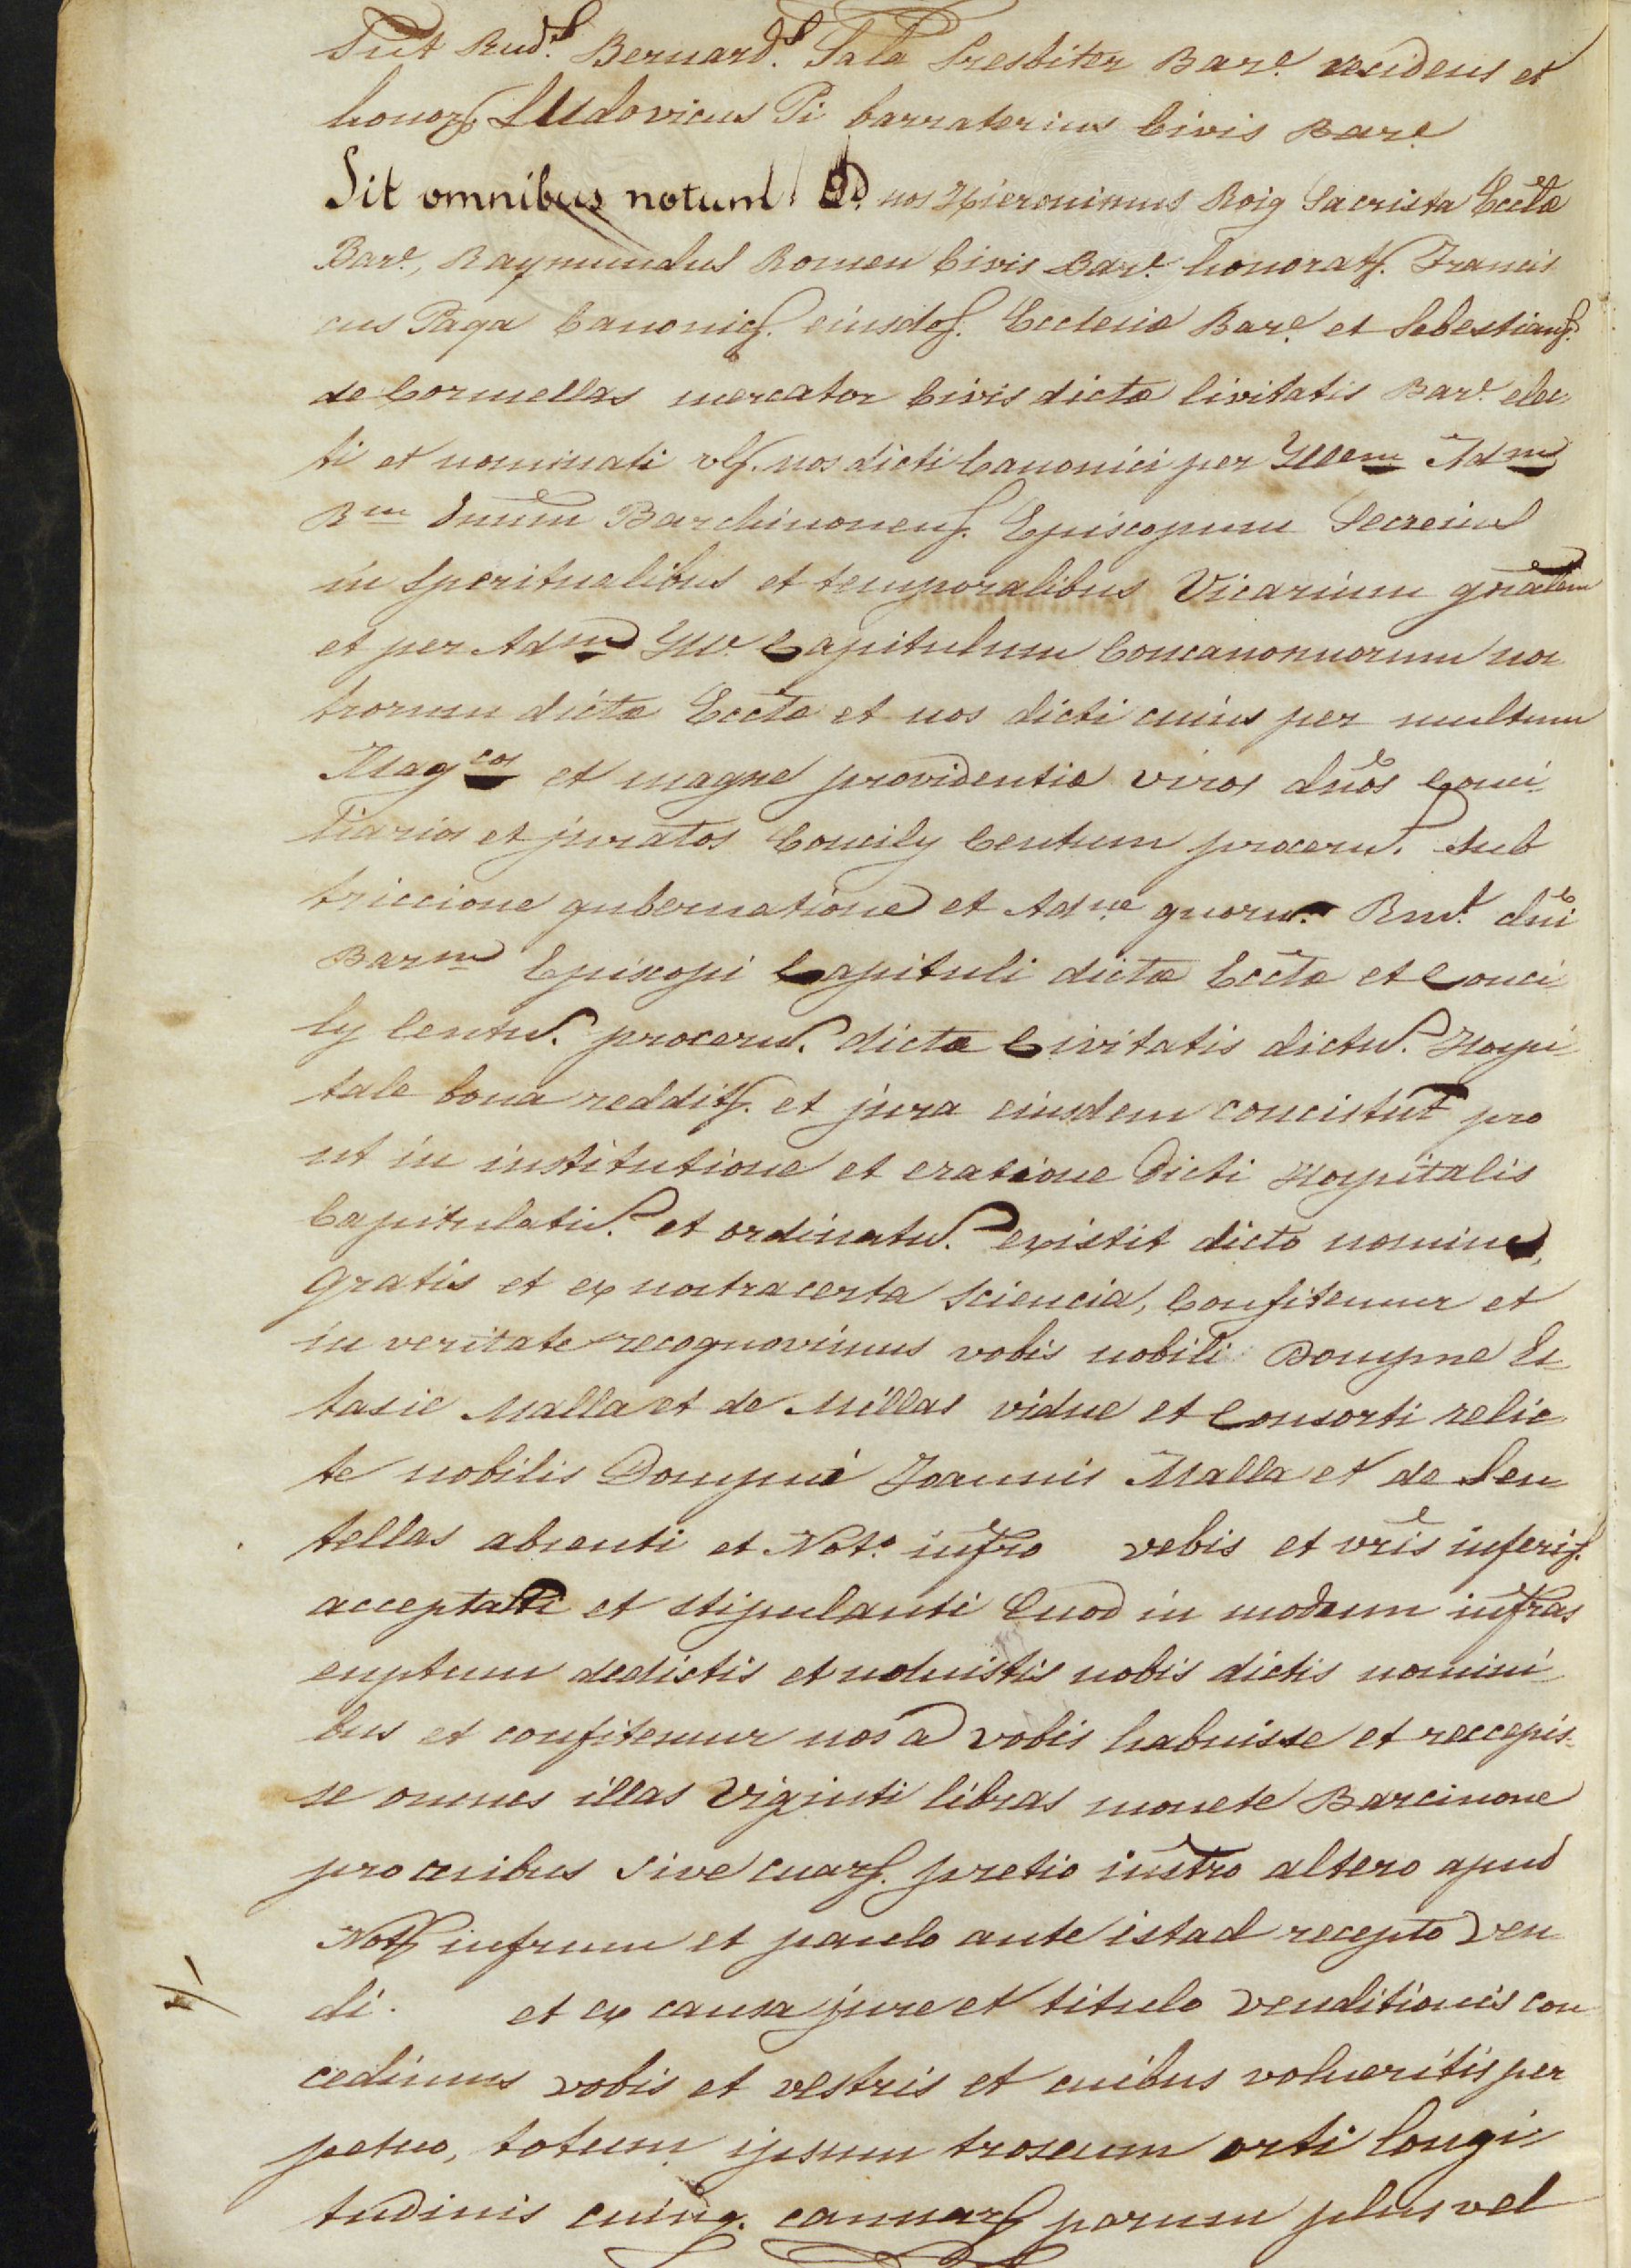 Sut Rud.s Bernard.s Sala Presbiter Bar.e residens et
honor. Ludovicus Pi barraterius Civis Bar.e
Sit omnibus notum Qd. nos Hieronimus Roig Sacrista Eccla
Bar.e, Raymundus Romeu Civis Bar.e honorat. Francis
cus Paga Canonic. eiusde. Ecclesiæ Bar.e et Sebestian.
de Cormellas mercator Civis dictæ Civitatis Bar.e elec
ti et nominati nos dicti Canonici per Illem Adm
Rm Dnum Barchinonens. Episcopum
in Speritualibus et temporalibus Vicarium gñalem
et per Adm Capitulum Concanonicorum nos
trorum dictæ Eccla et nos dicti per multum
Mag.cos et magne providentiæ viros dños Conci
liarios et juratos Concily Centum proceru. Sub
triccione gubernatione et Ad.ne quoru. Rm. dñi
Bar.ne Episcopi Capituli dictæ Eccla et Conci
ly Centu. proceru. dictæ Civitatis dictu. Hospi
tale bona reddit. et jura eiusdem concistut pro
ut in institutione et eratione Dicti Hospitalis
Capitulatu. et ordinatu. existit dicto nomine,
Gratis et ex nostra certa Sciencia, Confitemur et
in veritate recognovimus vobis nobili Dompne Es
tasie Malla et de Millas vidue et Consorti relic
te nobilis Dompni Joannis Malla et de Sen
tellas absenti et Not.o infro vobis et vris inferi.
acceptanti et stipulanti Quod in modum infras
cuptum dedistis et noluistis nobis dictis nomini
bus et confitemur nos a vobis habuisse et reccepis
se omnes illas Viginti libras monete Barcinone
pro pretio instro altero apud
Not. infrum et paulo ante istad recepto Ven
di. et ex causa jure et titulo venditionis con
cedimus vobis et vestris et cuibus volueritis per
petuo, totum ipsum troseum orti longi
tudinis cuinq. cannar. parum plus vel